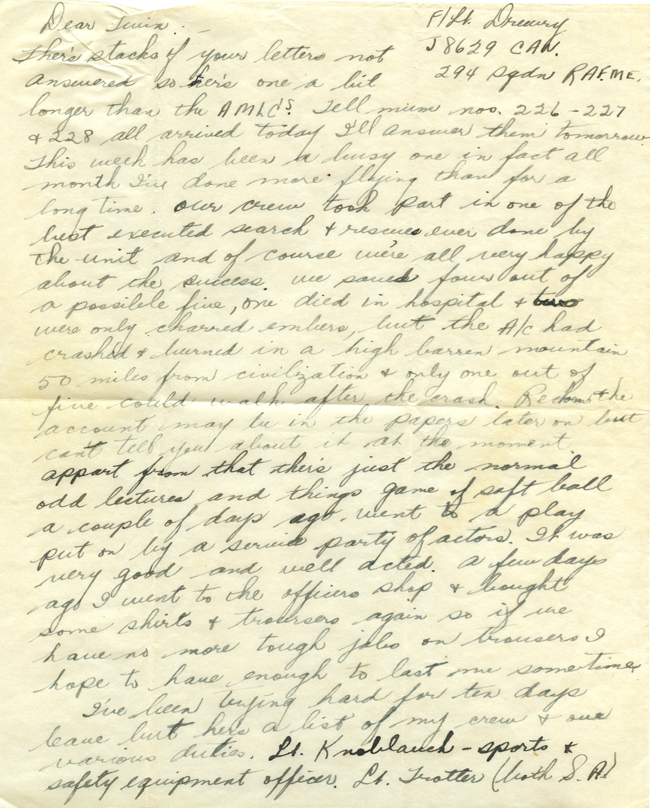 Dear Twin:-
F/Lt. Drewry
J8629 CAN.
294 Sqdn RAF.ME.
Ther's stacks of your letters not
answered so her's one a bit
longer than the AMLCs. Tell mum nos. 226-227
& 228 all arrived today I'll answer them tomorrow.
This week has been a busy one in fact all
month I've done more flying than for a
long time. Our crew took part in one of the
best executed search & rescues ever done by
the unit and of course we're all very happy
about the success. we saved four out of
a possible five, one died in hospital & two
were only charred embers, but the A/c had
crashed & burned in a high barren mountain
50 miles from civilization & only one out of
five could walk after the crash. Reckon the
account may be in the papers later on but
can't tell you about it at the moment
appart from that ther's just the normal
odd lectures and things game of soft ball
a couple of days ago. went to a play
put on by a service party of actors. It was
very good and well acted. a few days
ago I went to the officers shop & bought
some shirts & trousers again so if we
have no more tough jobs on trousers I
hope to have enough to last me sometime
I've been trying hard for ten days
leave but her's a list of my crew & our
various duties. Lt. Knoblauch - sports &
safety equipment officer. Lt. Trotter (both S.A)